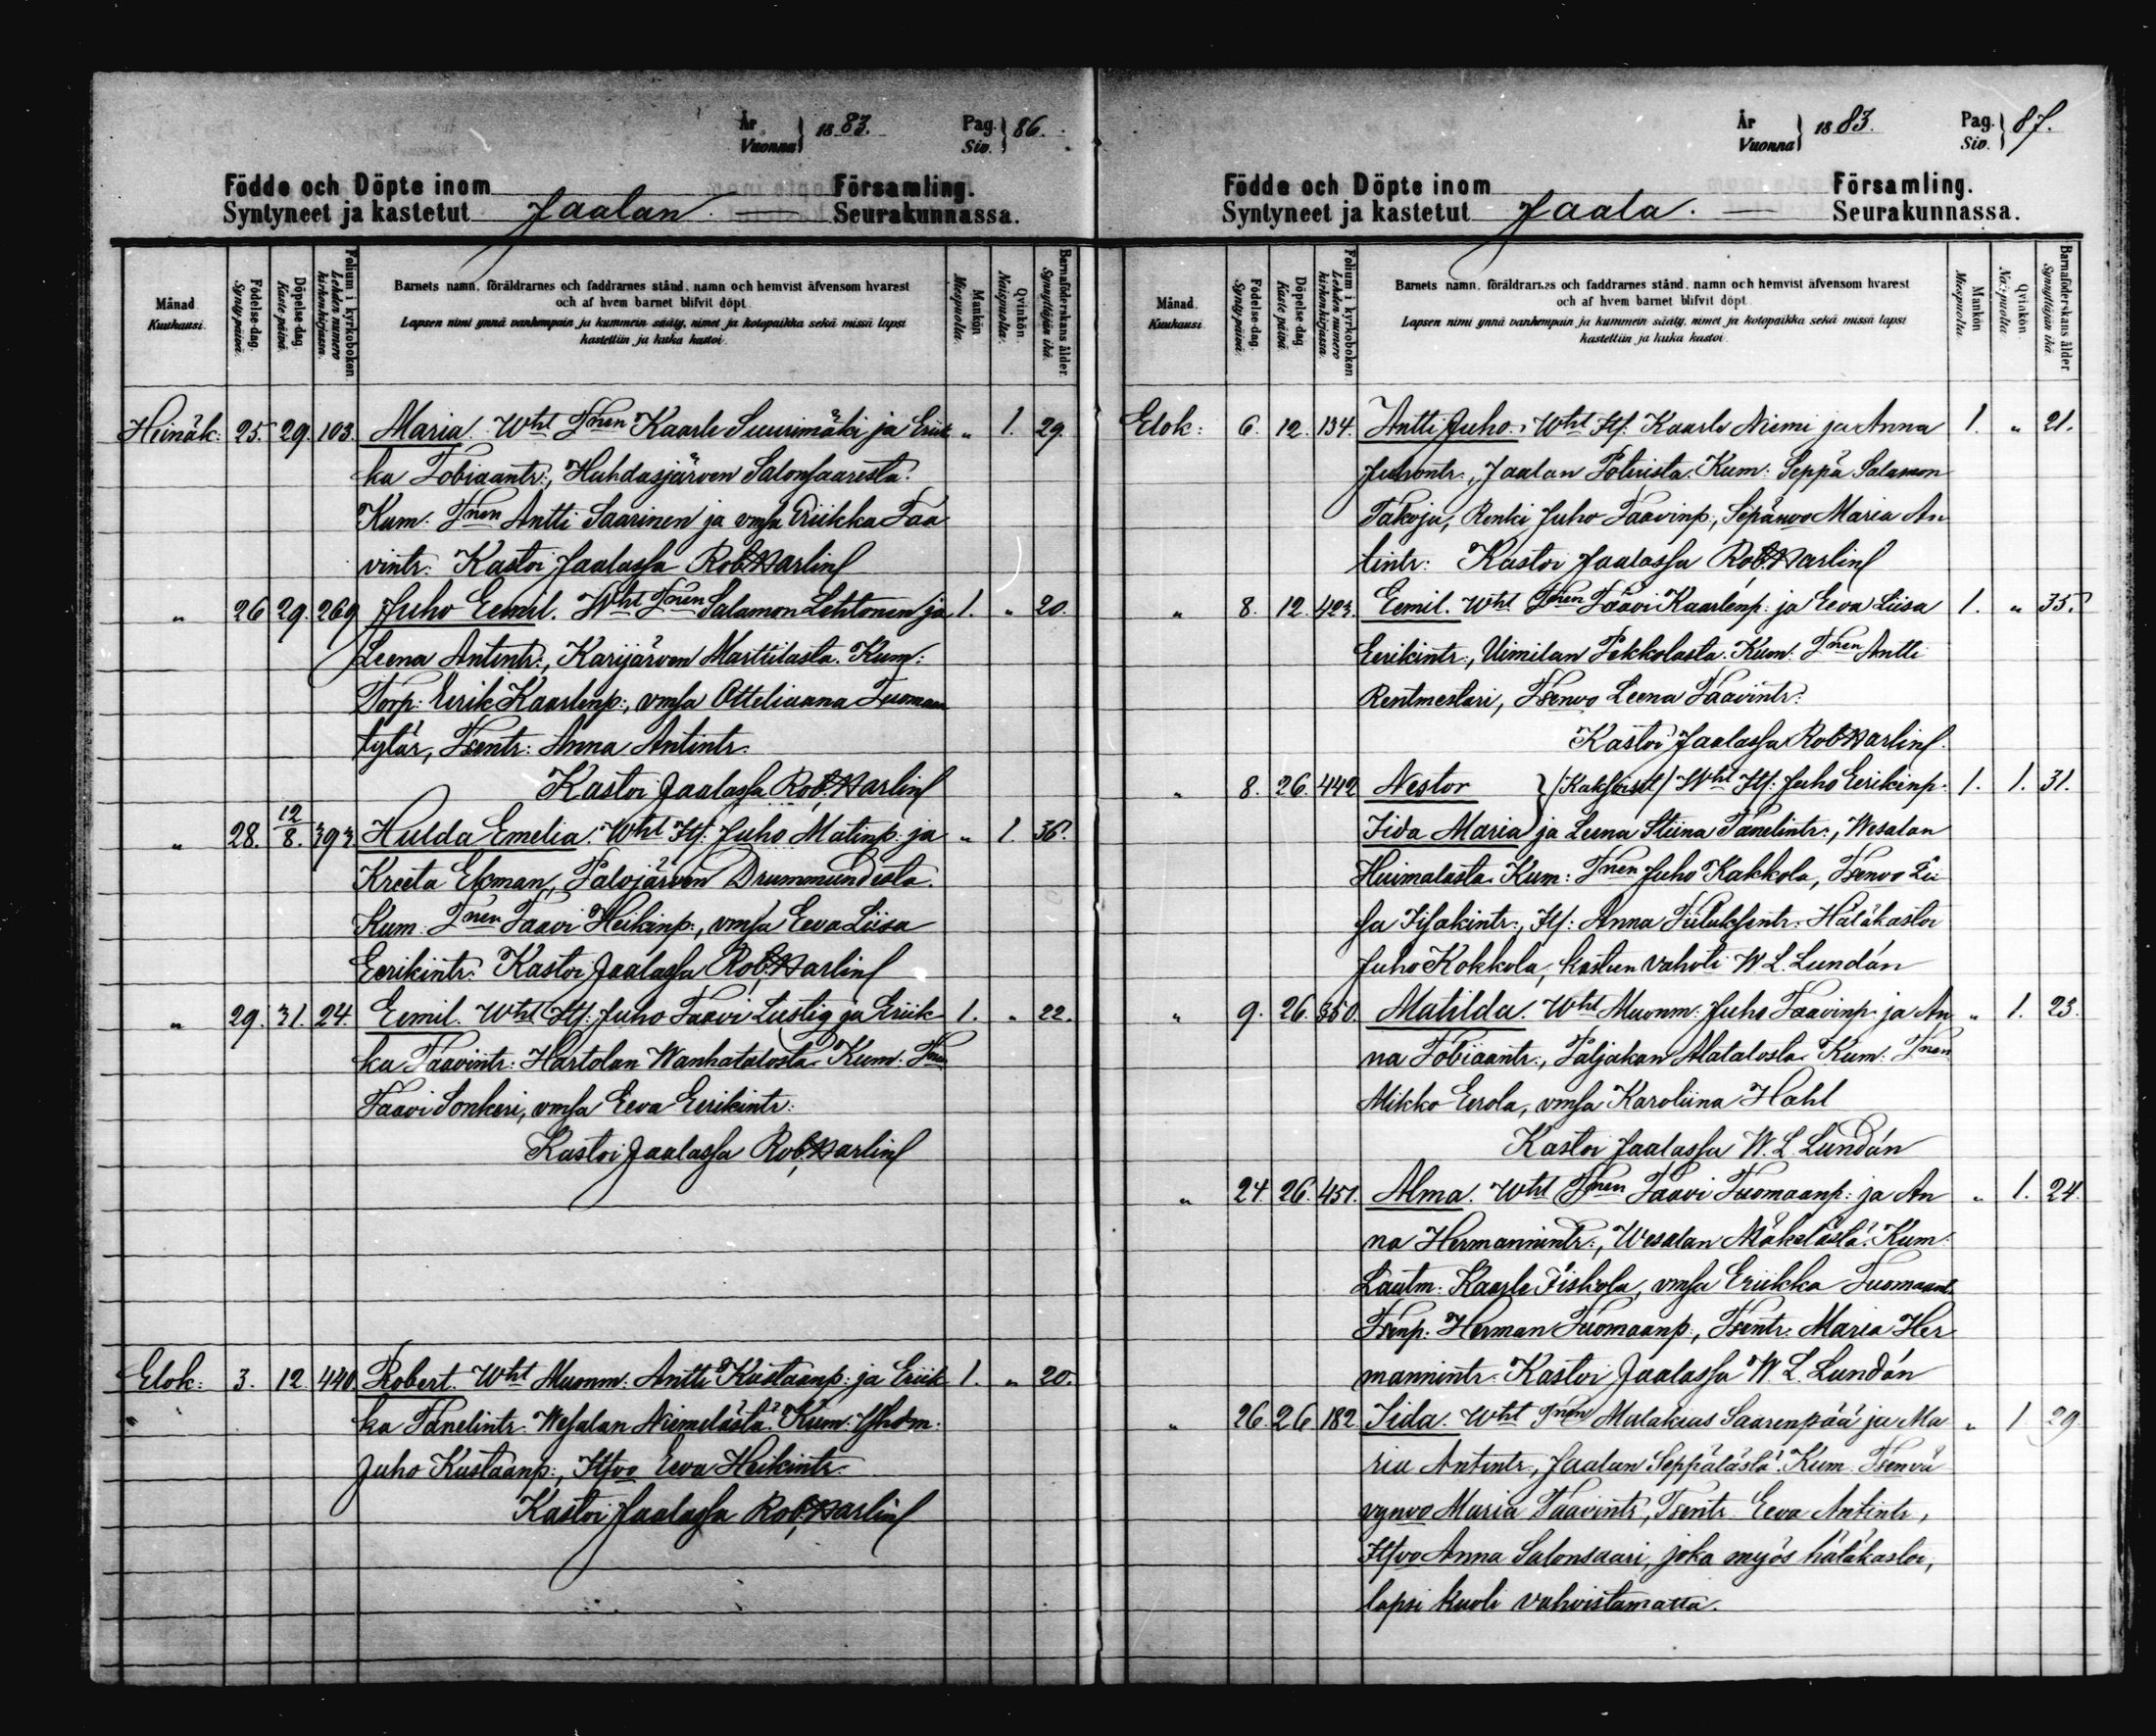 År
Vuonna } 1883. Pag.
Siv. } 86.
Födde och Döpte inom Församling.
Syntyneet ja kastetut Jaalan. — Seurakunnassa.
Månad. Kuukausi.
Födelse-dag. Synty-päivä.
Döpelse-dag. Kaste päivä.
Folium i kyrkoboken. Lehden numero kirkonkirjassa.
Barnets namn, föräldrarnes och faddrarnes stånd, namn och hemvist äfvensom hvarest
och af hvem barnet blifvit döpt.
Lapsen nimi ynnä vanhempain ja kummein sääty, nimet ja kotopaikka sekä missä lapsi
kastettiin ja kuka kastoi.
Mankön. Miespuolta.
Qvinkön. Naispuolta.
Barnaföderskans ålder. Synnyttäjän ikä.
Heinäk: 25. 29. 103. Maria. Wht Tnen Kaarle Suurimäki ja Eriik " 1. 29.
ka Tobiaantr:, Huhdasjärven Salonsaaresta.
Kum: Tnen Antti Saarinen ja vmsa Eriikka Taa
vintr: Kastoi Jaalassa Rob. Harlin
" 26 29. 269 Juho Eemil. Wht Tnen Salamon Lehtonen ja 1. " 20.
Leena Antintr:, Karijärven Marttilasta. Kum:
Torp: Eerik Kaarlenp:, vmsa Otteliaana Tuomaan
tytär, Tsentr: Anna Antintr.
Kastoi Jaalassa Rob. Harlin
" 28. 12/8. 393 Hulda Emelia. Wht Its: Juho Matinp: ja " 1. 36.
Kreeta Ekman, Palojärven Drummundista.
Kum: Tnen Taavi Heikinp:, vmsa Eeva Liisa
Eerikintr: Kastoi Jaalassa Rob. Harlin
" 29. 31. 24. Eemil. Wht Its: Juho Taavi Lustig ja Eriik 1. " 22.
ka Taavintr: Hartolan Wanhatalosta. Kum: Tnen
Taavi Sonkeri, vmsa Eeva Eerikintr:
Kastoi Jaalassa Rob. Harlin
Elok: 3. 12. 440. Robert. Wht Muonm: Antti Kustaanp: ja Eriik 1. " 20.
ka Tanelintr: Wesalan Niemelästä. Kum:
Juho Kustaanp:, Itsvo Eeva Heikintr.
Kastoi Jaalassa Rob. Harlin
År
Vuonna } 1883. Pag.
Siv. } 87.
Födde och Döpte inom Församling.
Syntyneet ja kastetut Jaala. — Seurakunnassa.
Månad. Kuukausi.
Födelse-dag. Synty-päivä.
Döpelse-dag. Kaste päivä.
Folium i kyrkoboken. Lehden numero kirkonkirjassa.
Barnets namn, föräldrarnes och faddrarnes stånd, namn och hemvist äfvensom hvarest
och af hvem barnet blifvit döpt.
Lapsen nimi ynnä vanhempain ja kummein sääty, nimet ja kotopaikka sekä missä lapsi
kastettiin ja kuka kastoi.
Mankön. Miespuolta.
Qvinkön. Naispuolta.
Barnaföderskans ålder. Synnyttäjän ikä.
Elok: 6. 12. 134. Antti Juho. Wht Its: Kaarle Niemi ja Anna 1. " 21.
Juhontr:, Jaalan Polvista. Kum: Seppä Salamon
Takoja, Renki Juho Taavinp:, Sepänvo Maria An
tintr: Kastoi Jaalassa Rob. Harlin
" 8. 12. 423. Eemil. Wht Tnen Taavi Kaarlenp: ja Eeva Liisa 1. " 35.
Eerikintr:, Uimilan Pekkolasta. Kum: Tnen Antti
Rentmestari, Tsenvo Leena Taavintr:
Kastoi Jaalassa Rob. Harlin
" 8. 26. 442 Nestor } (Kaksoiset) Wht Its: Juho Eerikinp: 1. 1. 31.
Iida Maria } ja Leena Stiina Tanelintr:, Wesalan
Huimalasta. Kum: Tnen Juho Kakkola, Tsenvo Lii
sa Iisakintr:, Its: Anna Hätäkastoi
Juho Kokkola, kasteen vahvisti W. L. Lundán
" 9. 26. 350. Matilda. Wht Muonm: Juho Taavinp: ja An " 1. 23.
na Tobiaantr:, Paljakan Alatalosta. Kum: Tnen
Mikko Eerola, vmsa Karoliina Hahl
Kastoi Jaalassa W. L. Lundán
" 24. 26. 451. Alma. Wht Tnen Taavi Tuomaanp: ja An " 1. 24.
na Hermannintr:, Wesalan Mäkelästä. Kum:
Lautm: Kaarle Iiskola, vmsa Eriikka Tuomaant.
Tsenp: Herman Tuomaanp:, Tsentr: Maria Her
mannintr: Kastoi Jaalassa W. L. Lundán
" 26. 26 182 Iida. Wht Tnen Malakias Saarenpää ja Ma " 1 29.
ria Antintr:, Jaalan Seppälästä. Kum: Tsenvä
vynvo Maria Taavintr:, Tsentr: Eeva Antintr:,
Itsvo Anna Salonsaari, joka myös hätäkastoi,
lapsi kuoli vahvistamatta.